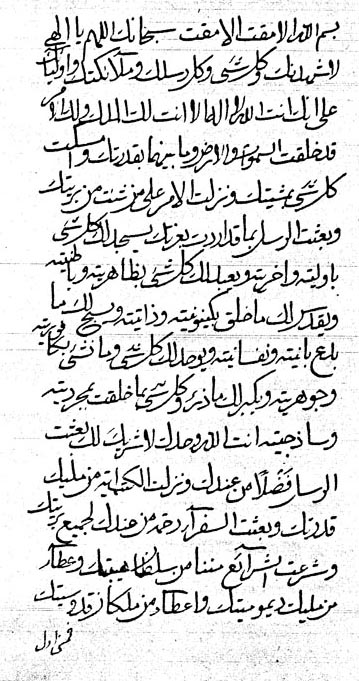 بسم الله الامقت الامقت سبحانك اللهم يا الهي
لاشهدنك وكلشيء وكل رسلك وملائكتك واوليائك
على انك انت الله لا اله الا انت لك الملك ولك الامر
قد خلقت السموات والارض وما بينهما بقدرتك و امسكت
كلشيء بمشيتك ونزلت الامر على من شئت من بريتك
وبعثت الرسل بما قد اردت بعزتك يسجد لك كلشيء
باوليته واخريته ويعبد لك كلشيء بظاهريته وباطنيته
ويقدس لك ما خلق بكينونيته وذاتيته ويسبح لك ما
بانيته ونفسانيته ويوحد لك كلشيء وما شيء بكافوريته
وجوهريته ويكبر لك ما ذرء وكلشيء بما خلقت بمجرديته
وساذجيته انت الله وحدك لا شريك لك بعثت
الرسل فضلا من عندك ونزلت الكتب من مليك
قدرتك وبعثت السفراء رحمة من عندك لجميع بريتك
وشرعت الشرائع مننا من سلطان هيبتك وعطاء
من مليك ديموميتك واعطاء من ملكان قدوسيتك